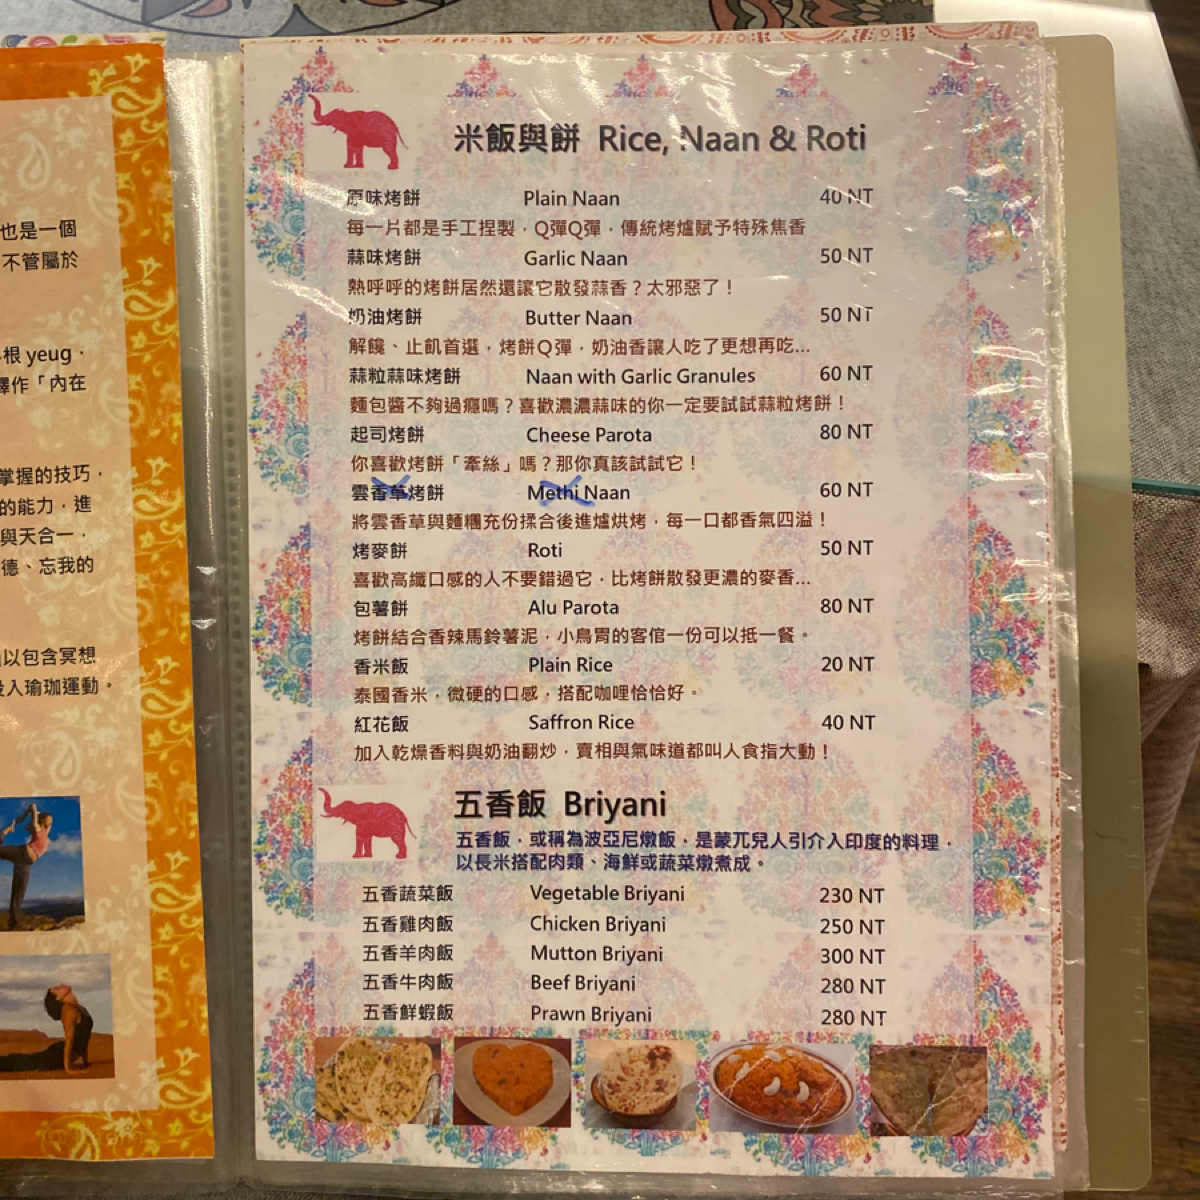 也是一個
不管屬於
根 yeug，
譯作「內在
掌握的技巧，
的能力，進
與天合一，
德、忘我的
以包含冥想
投入瑜珈運動。
米飯與餅 Rice, Naan & Roti
原味烤餅 Plain Naan 40 NT
每一片都是手工捏製，Q彈Q彈，傳統烤爐賦予特殊焦香
蒜味烤餅 Garlic Naan 50 NT
熱呼呼的烤餅居然還讓它散發蒜香？太邪惡了！
奶油烤餅 Butter Naan 50 NT
解饞、止飢首選，烤餅Q彈，奶油香讓人吃了更想再吃...
蒜粒蒜味烤餅 Naan with Garlic Granules 60 NT
麵包醬不夠過癮嗎？喜歡濃濃蒜味的你一定要試試蒜粒烤餅！
起司烤餅 Cheese Parota 80 NT
你喜歡烤餅「牽絲」嗎？那你真該試試它！
雲香草烤餅 Methi Naan 60 NT
將雲香草與麵糰充份揉合後進爐烘烤，每一口都香氣四溢！
烤麥餅 Roti 50 NT
喜歡高纖口感的人不要錯過它，比烤餅散發更濃的麥香...
包薯餅 Alu Parota 80 NT
烤餅結合香辣馬鈴薯泥，小鳥胃的客倌一份可以抵一餐。
香米飯 Plain Rice 20 NT
泰國香米，微硬的口感，搭配咖哩恰恰好。
紅花飯 Saffron Rice 40 NT
加入乾燥香料與奶油翻炒，賣相與氣味道都叫人食指大動！
五香飯 Briyani
五香飯，或稱為波亞尼燉飯，是蒙兀兒人引介入印度的料理，
以長米搭配肉類、海鮮或蔬菜燉煮成。
五香蔬菜飯 Vegetable Briyani 230 NT
五香雞肉飯 Chicken Briyani 250 NT
五香羊肉飯 Mutton Briyani 300 NT
五香牛肉飯 Beef Briyani 280 NT
五香鮮蝦飯 Prawn Briyani 280 NT